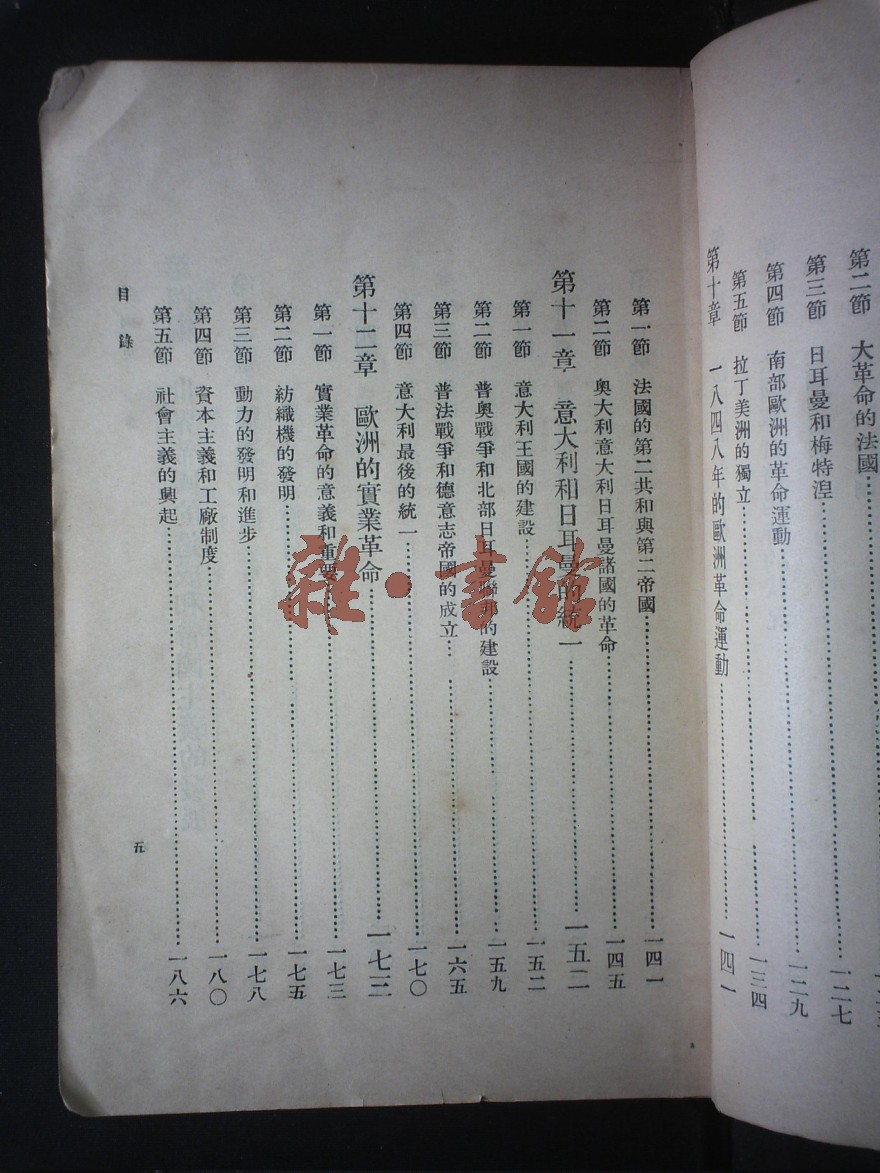 第二節 大革命的法國
第三節 日耳曼和梅特涅 一二七
第四節 南部歐洲的革命運動 一二九
第五節 拉丁美洲的獨立 一三四
第十章 一八四八年的歐洲革命運動 一四一
第一節 法國的第二共和與第二帝國 一四一
第二節 奧大利意大利日耳曼諸國的革命 一四五
第十一章 意大利和日耳曼的統一 一五二
第一節 意大利王國的建設 一五二
第二節 普奧戰爭和北部日耳曼聯邦的建設 一五九
第三節 普法戰爭和德意志帝國的成立 一六五
第四節 意大利最後的統一 一七〇
第十二章 歐洲的實業革命 一七三
第一節 實業革命的意義和重要 一七三
第二節 紡織機的發明 一七五
第三節 動力的發明和進步 一七八
第四節 資本主義和工廠制度 一八〇
第五節 社會主義的興起 一八六
目錄
五
雜·書館